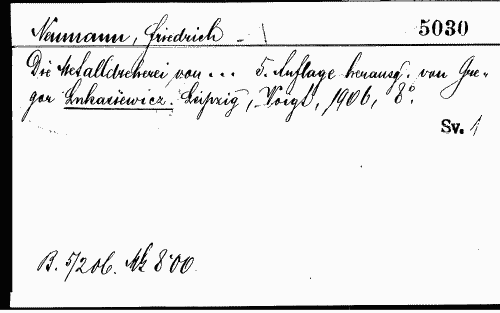 Neumann, Friedrich - 5030
Die Metalldreherei, von ... 5. Auflage herausg. von Gre-
gor Lukasiewicz. Leipzig, Voigt, 1906, 8°.
Sv. 1
B. 5/2 06. Mk 8·00